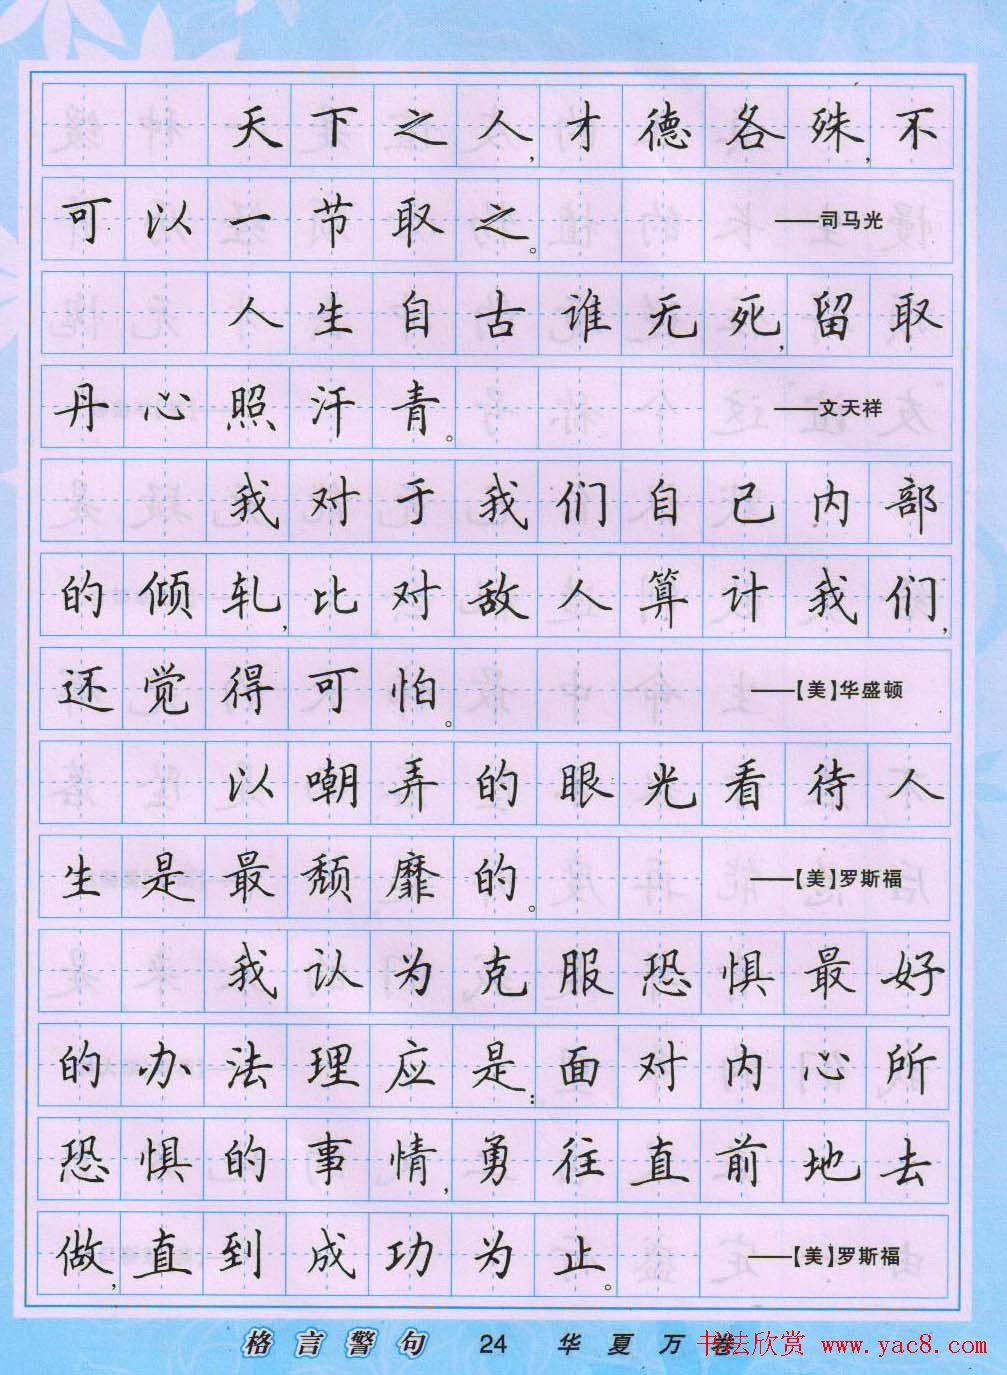 天下之人,才德各殊,不
可以一节取之。 ——司马光
人生自古谁无死,留取
丹心照汗青。 ——文天祥
我对于我们自己内部
的倾轧,比对敌人算计我们,
还觉得可怕。 ——【美】华盛顿
以嘲弄的眼光看待人
生是最颓靡的。 ——【美】罗斯福
我认为克服恐惧最好
的办法理应是:面对内心所
恐惧的事情,勇往直前地去
做,直到成功为止。 ——【美】罗斯福
格言警句 24 华夏万卷
书法欣赏 www.yac8.com